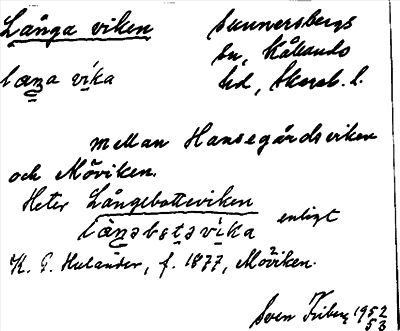 Långa viken
Sunnersbergs
sn, Kållands
hd, Skarab. l.
mellan Hansegårdsviken
och Möviken.
Heter Långebotteviken
enligt
K. G. Hulander, f. 1877, Möviken.
Sven Friberg 1952
53